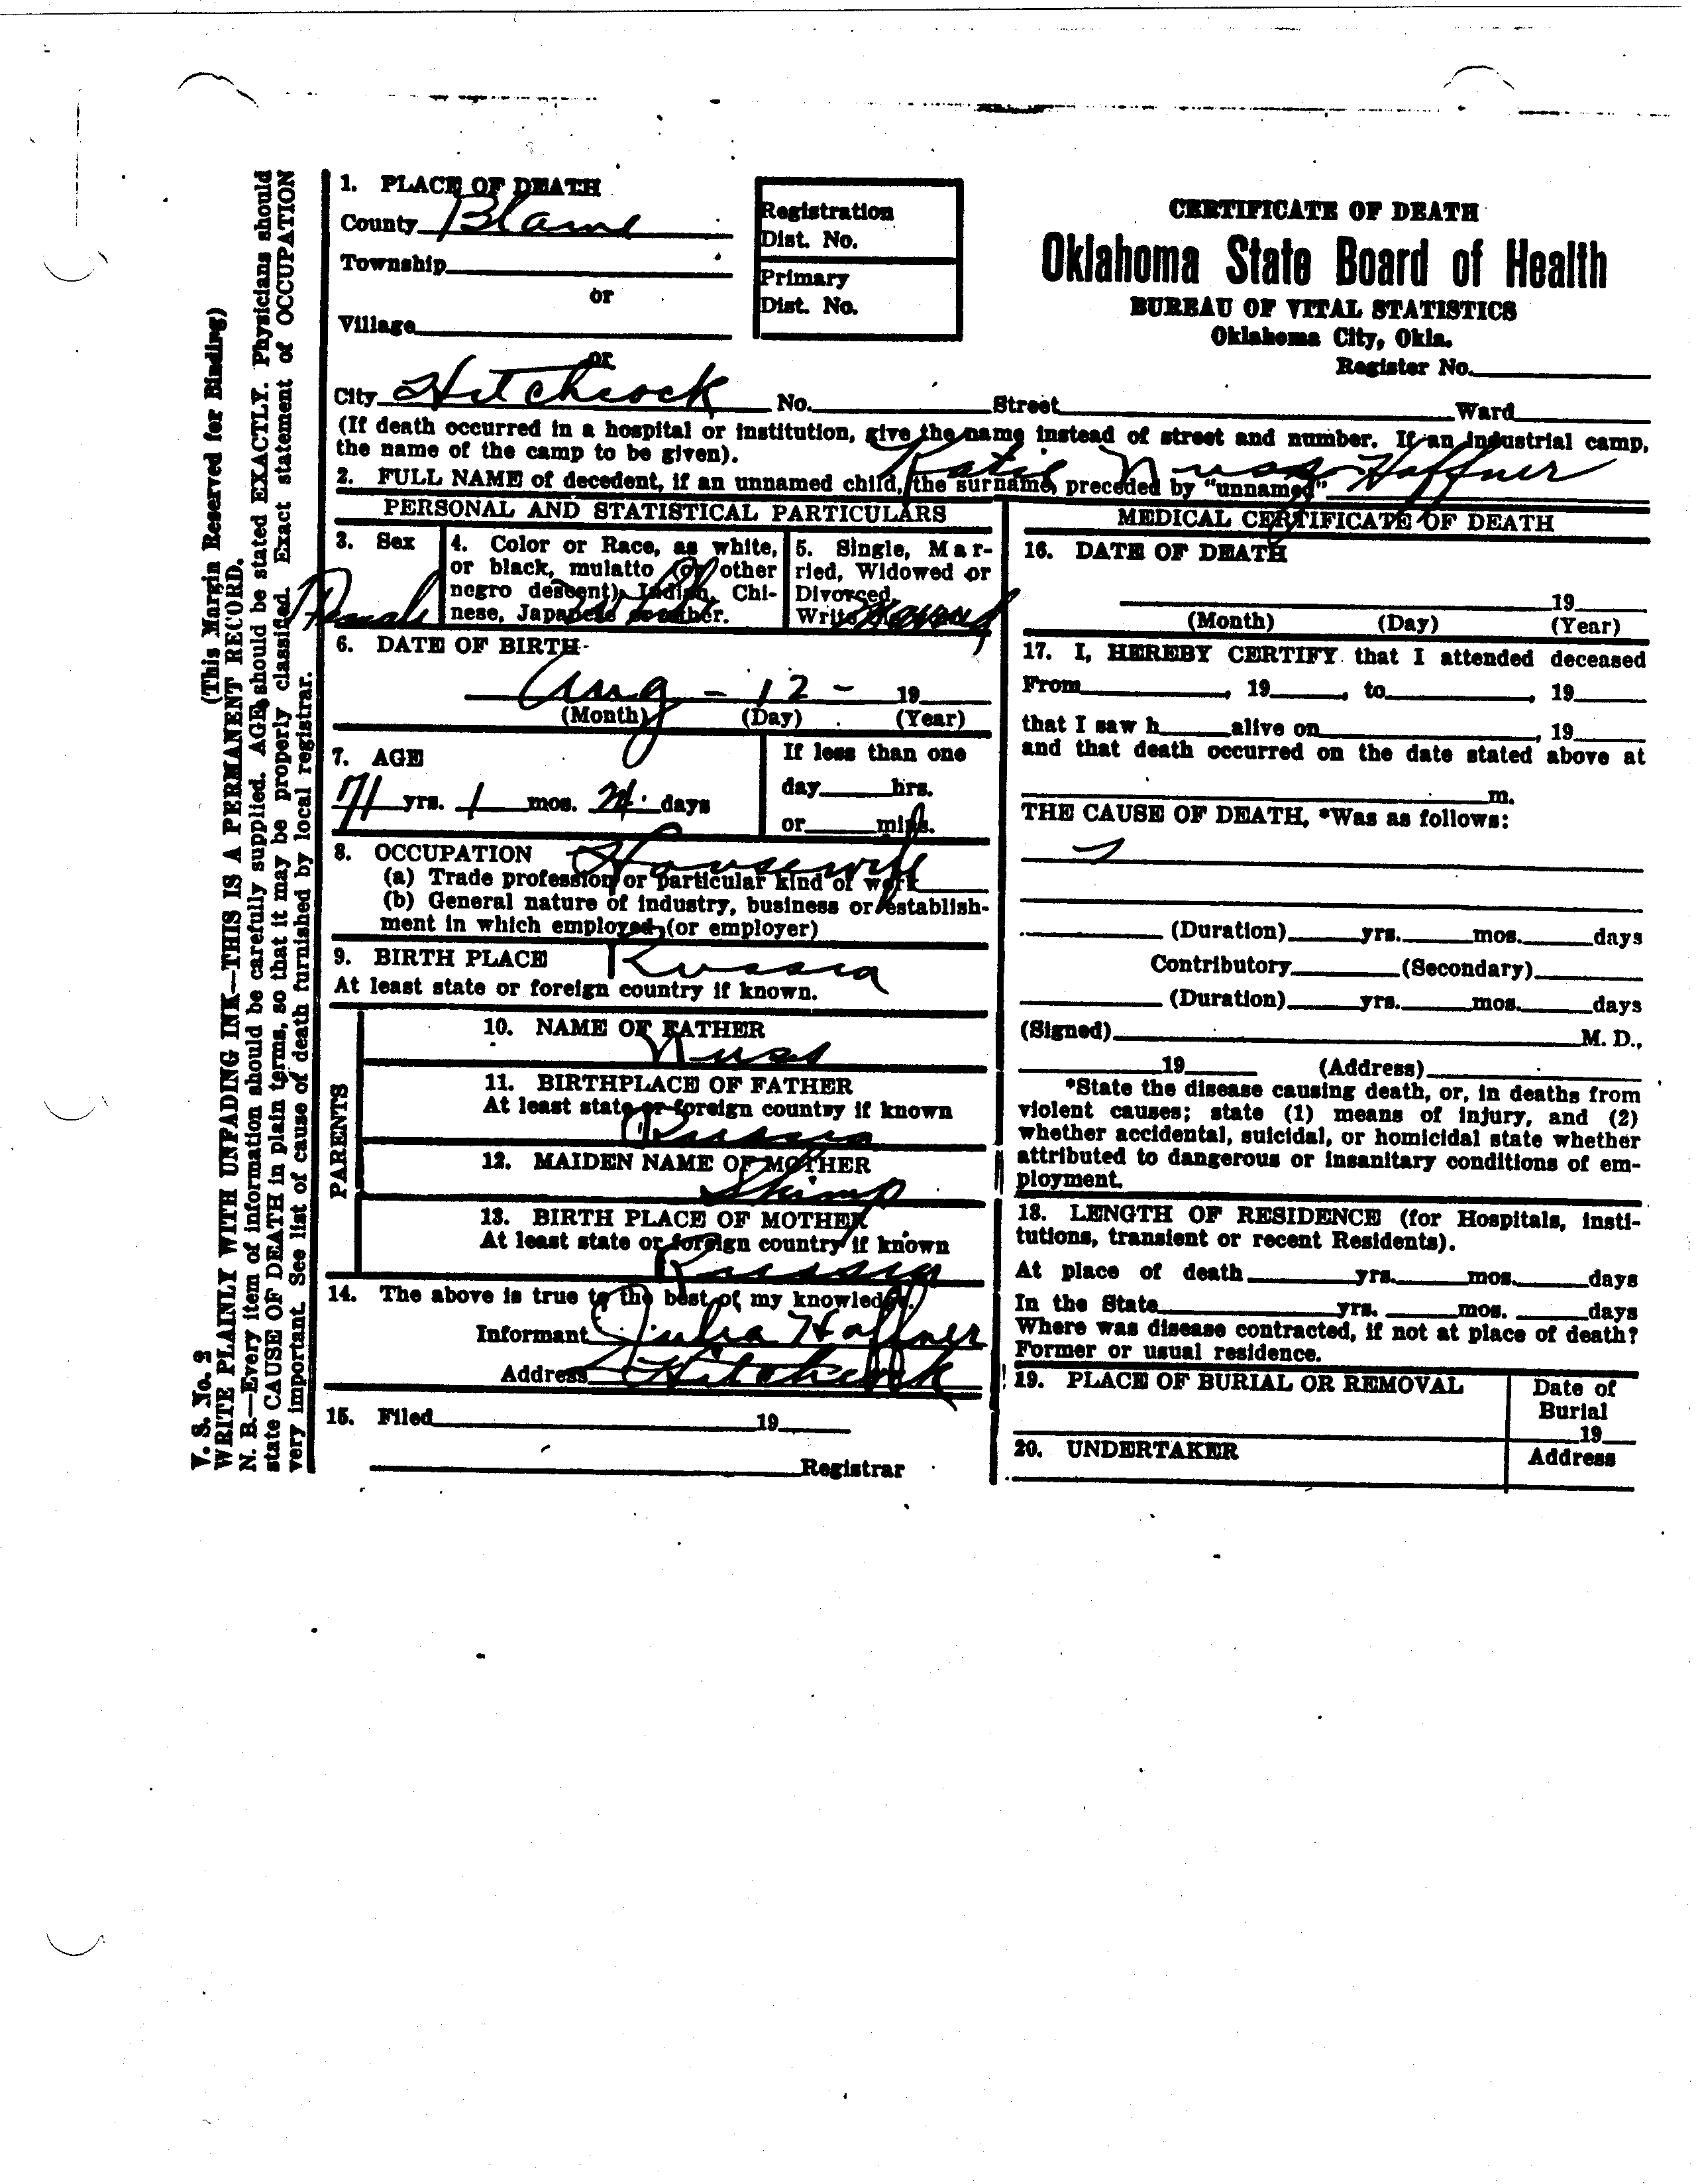 1. PLACE OF DEATH
County Blaine
Township
or
Village
or
City Hitchcock No. Street Ward
Registration
Dist. No.
Primary
Dist. No.
CERTIFICATE OF DEATH
Oklahoma State Board of Health
BUREAU OF VITAL STATISTICS
Oklahoma City, Okla.
Register No.
(If death occurred in a hospital or institution, give the name instead of street and number. If an industrial camp,
the name of the camp to be given).
2. FULL NAME of decedent, if an unnamed child, the surname, preceded by "unnamed" Katie Nuss Haffner
PERSONAL AND STATISTICAL PARTICULARS
3. Sex
Female
4. Color or Race, as white,
or black, mulatto (or other
negro descent), Indian, Chi-
nese, Japanese or other.
5. Single, Mar-
ried, Widowed or
Divorced
Write
6. DATE OF BIRTH
Aug - 12 - 19
(Month) (Day) (Year)
7. AGE
71 yrs. 1 mos. days
If less than one
day hrs.
or mins.
8. OCCUPATION Housewife
(a) Trade profession or particular kind of work
(b) General nature of industry, business or establish-
ment in which employed (or employer)
9. BIRTH PLACE Russia
At least state or foreign country if known.
PARENTS
10. NAME OF FATHER
Nuss
11. BIRTHPLACE OF FATHER
At least state or foreign country if known
Russia
12. MAIDEN NAME OF MOTHER
Skimp
13. BIRTH PLACE OF MOTHER
At least state or foreign country if known
Russia
14. The above is true to the best of my knowledge.
Informant Julia Haffner
Address Hitchcock
15. Filed 19
Registrar
MEDICAL CERTIFICATE OF DEATH
16. DATE OF DEATH
19
(Month) (Day) (Year)
17. I, HEREBY CERTIFY that I attended deceased
From , 19 , to , 19
that I saw h alive on , 19
and that death occurred on the date stated above at
m.
THE CAUSE OF DEATH, *Was as follows:
(Duration) yrs. mos. days
Contributory (Secondary)
(Duration) yrs. mos. days
(Signed) M. D.,
19 (Address)
*State the disease causing death, or, in deaths from
violent causes; state (1) means of injury, and (2)
whether accidental, suicidal, or homicidal state whether
attributed to dangerous or insanitary conditions of em-
ployment.
18. LENGTH OF RESIDENCE (for Hospitals, insti-
tutions, transient or recent Residents).
At place of death yrs. mos. days
In the State yrs. mos. days
Where was disease contracted, if not at place of death?
Former or usual residence.
19. PLACE OF BURIAL OR REMOVAL
Date of
Burial
19
20. UNDERTAKER
Address
V. S. No. 3
(This Margin Reserved for Binding)
WRITE PLAINLY WITH UNFADING INK—THIS IS A PERMANENT RECORD.
N. B.—Every item of information should be carefully supplied. AGE should be stated EXACTLY. Physicians should
state CAUSE OF DEATH in plain terms, so that it may be properly classified. Exact statement of OCCUPATION
very important. See list of cause of death furnished by local registrar.